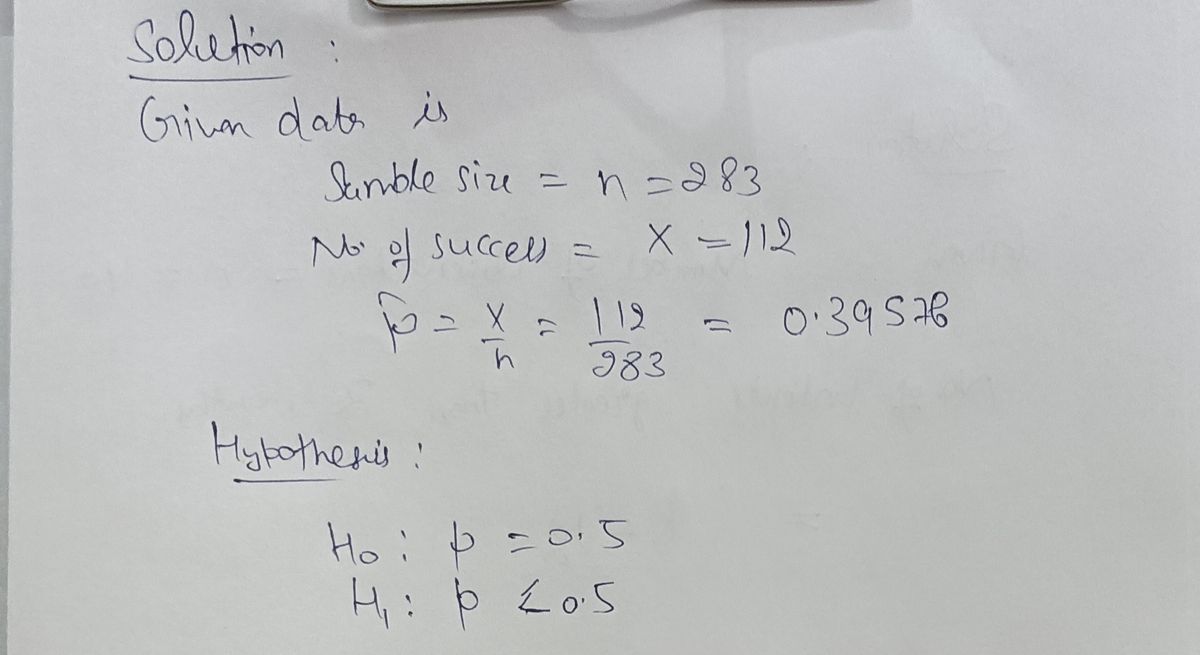 Solution :
Given data is
Sample size = n = 283
No. of success = X = 112
p̂ = X/n = 112/283 = 0.39576
Hypothesis :
H₀ : p = 0.5
H₁ : p < 0.5